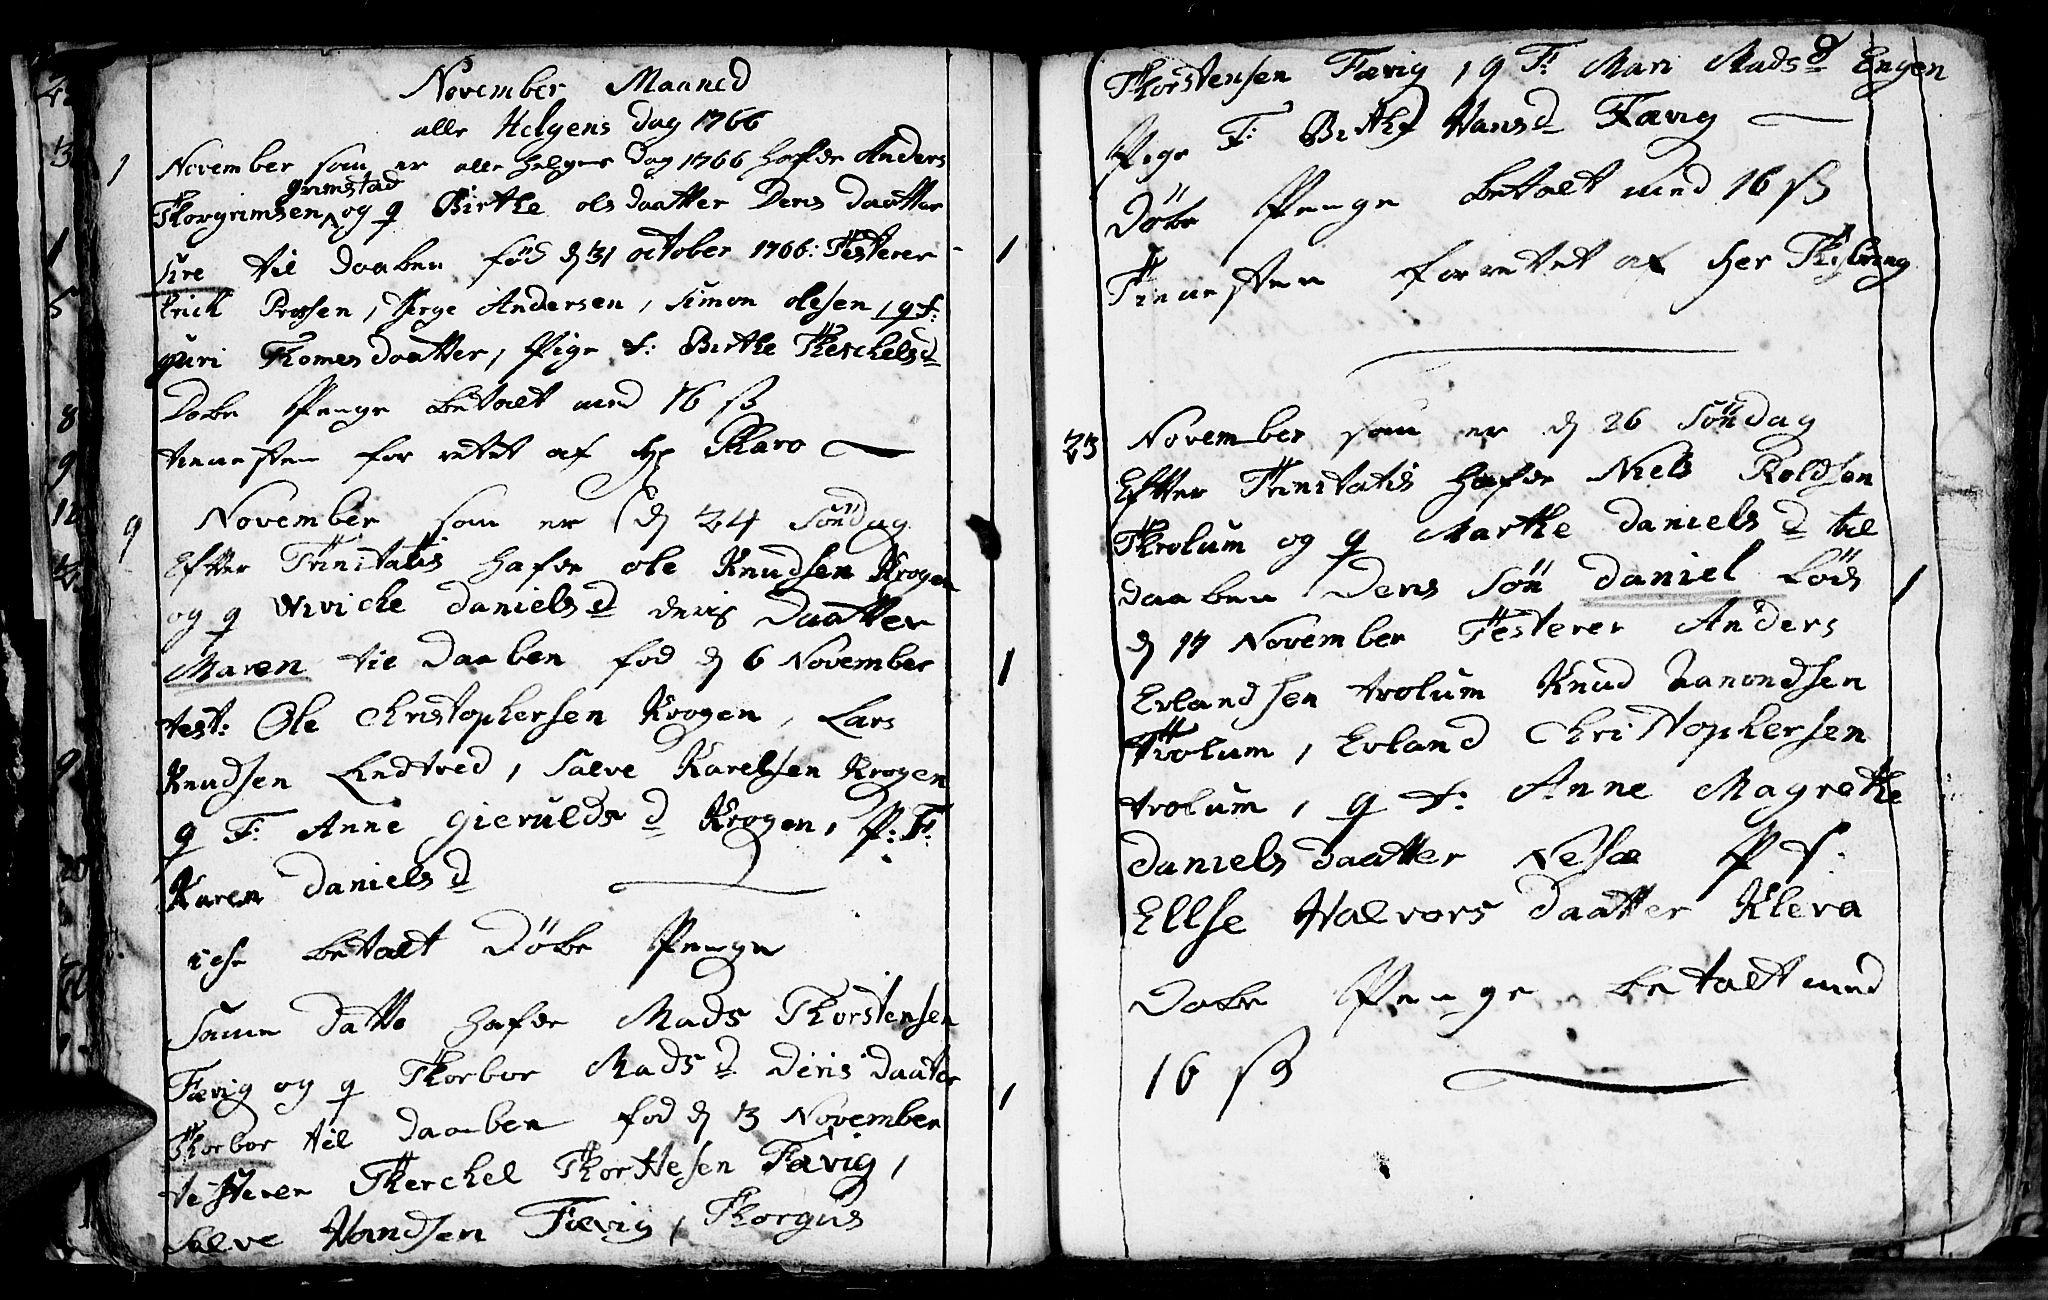 November Maaned
alle Helgens Dag 1766
1 November som er alle Helgens Dag 1766 hafde Anders
grimstad
Thorgrimsen og q Birthe ols daatter Deris Daatter
Sire til Daaben föd d 31 october 1766: Testerer
Erich Prossen, Jerge Andersen, Simon olesen, q f:
guri Thomes daatter, Pige f: Birthe Therchelsd
Dobe Penge betalt med 16 sß
tienesten for rettet af Hr Tharo
9 November som er d 24 Söndag
Efter Trinitatis hafde ole Knudsen Krogen
og q Wiviche Daniels d deris Daatter
Maren til Daaben fod d 6 November
test: Ole Christophersen Krogen, Lars
Knudsen Lindtved, Salve Karelsen Krogen
q F: Anne Gierulds d Krogen, P: F:
Karen Daniels d
icke betalt Döbe Penge
Same Datto hafde Mads Thorstensen
Fævig og q Thorbor Mads d Deris Daatter
Thorbor til Daaben fod d 3 November
testerer Therchel Thorstesen Fævig,
Salve Handsen Fævig, Thorgus
Thorstensen Fævig, q F: Mari Madsd Engen
Pige F: Birthe Hansd Fævig
Döbe Penge betalt med 16 sß
Tienesten forrettet af her
1
1
1
23 November som er d 26 Söndag
Efter Trinitatis hafde Niels Roldsen
Throlum og q Marthe Daniels d til
daaben Deris Sön Daniel föds
d 17 November Testerer Anders
Erlandsen trolum Knud Aanondsen
Trolum, Erland Christophersen
trolum, q f: Anne Magrethe
Daniels daatter Nesæ P f:
Ellse Halvors Daatter Kleva
Dobe Penge betalt med
16 sß
1